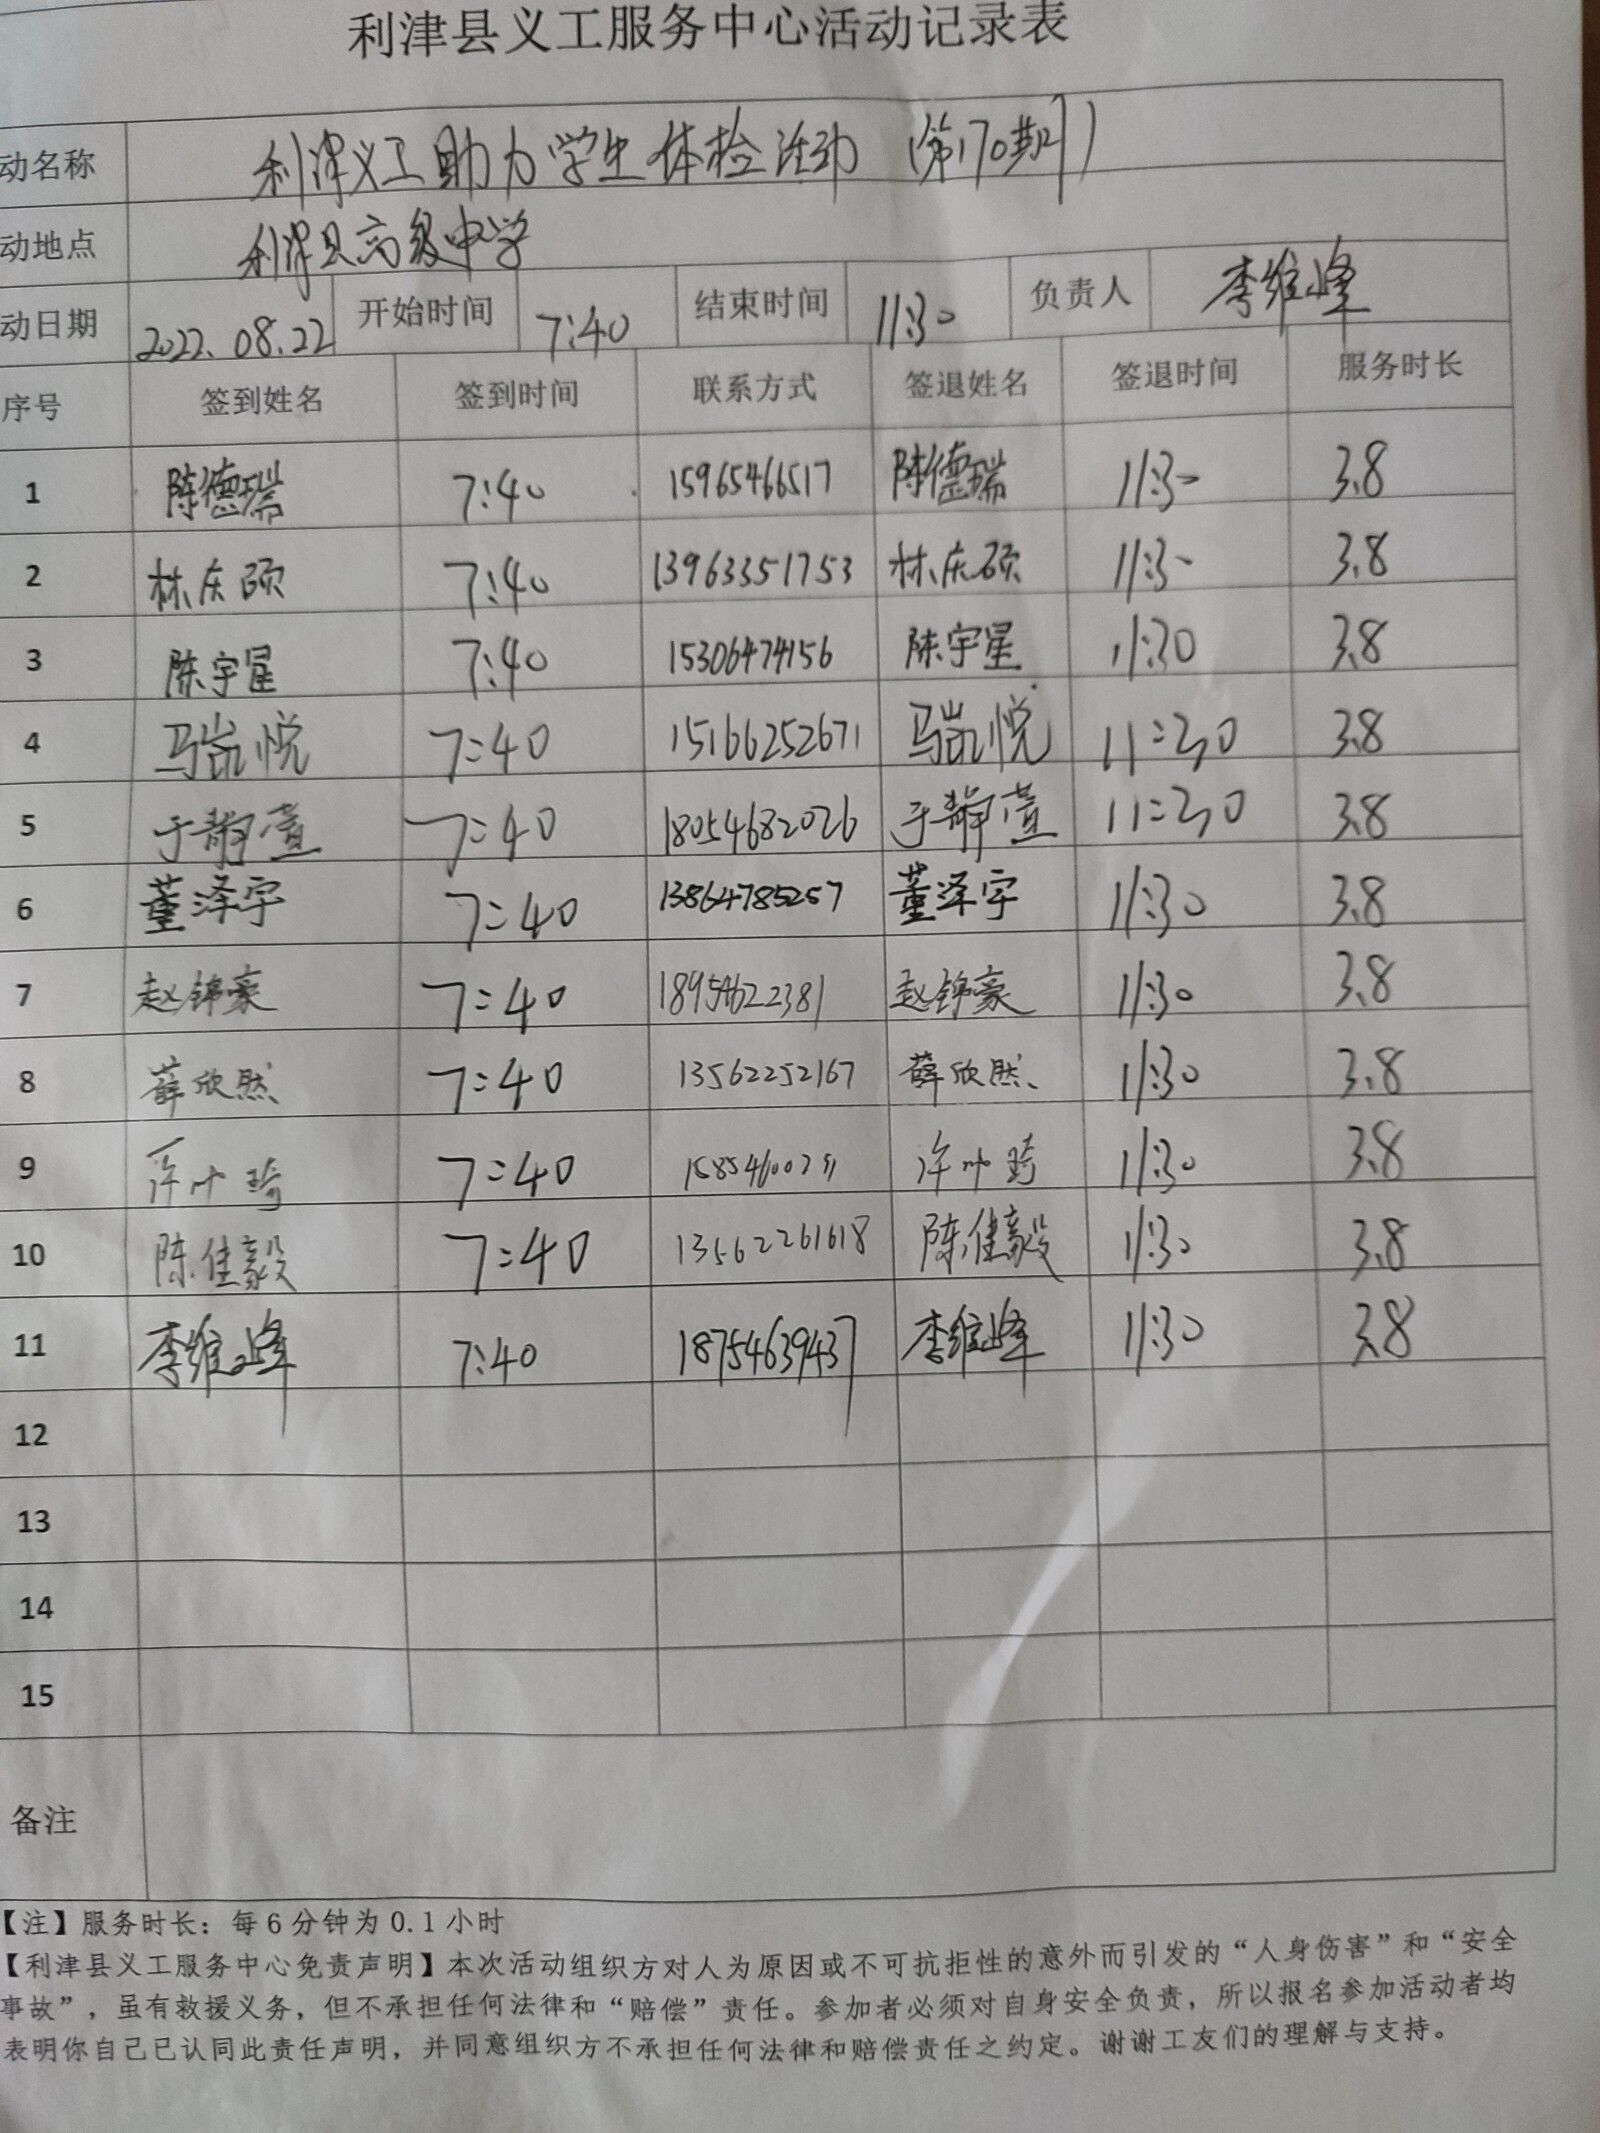 利津县义工服务中心活动记录表
动名称 利津义工助力学生体检活动（第170期）
动地点 利津县高级中学
动日期 2022.08.22 开始时间 7:40 结束时间 11:30 负责人 李维峰
序号 签到姓名 签到时间 联系方式 签退姓名 签退时间 服务时长
1 陈德瑞 7:40 15965466517 陈德瑞 11:30 3.8
2 林庆硕 7:40 13963351753 林庆硕 11:30 3.8
3 陈宇星 7:40 15306474156 陈宇星 11:30 3.8
4 马凯悦 7:40 15166252671 马凯悦 11:30 3.8
5 于静萱 7:40 18054682026 于静萱 11:30 3.8
6 董泽宇 7:40 13864785257 董泽宇 11:30 3.8
7 赵锦豪 7:40 18954622381 赵锦豪 11:30 3.8
8 薛欣然 7:40 13562252167 薛欣然 11:30 3.8
9 许叶琦 7:40 许叶琦 11:30 3.8
10 陈佳毅 7:40 13562261618 陈佳毅 11:30 3.8
11 李维峰 7:40 18754639437 李维峰 11:30 3.8
12
13
14
15
备注
【注】服务时长：每6分钟为0.1小时
【利津县义工服务中心免责声明】本次活动组织方对人为原因或不可抗拒性的意外而引发的“人身伤害”和“安全
事故”，虽有救援义务，但不承担任何法律和“赔偿”责任。参加者必须对自身安全负责，所以报名参加活动者均
表明你自己已认同此责任声明，并同意组织方不承担任何法律和赔偿责任之约定。谢谢工友们的理解与支持。